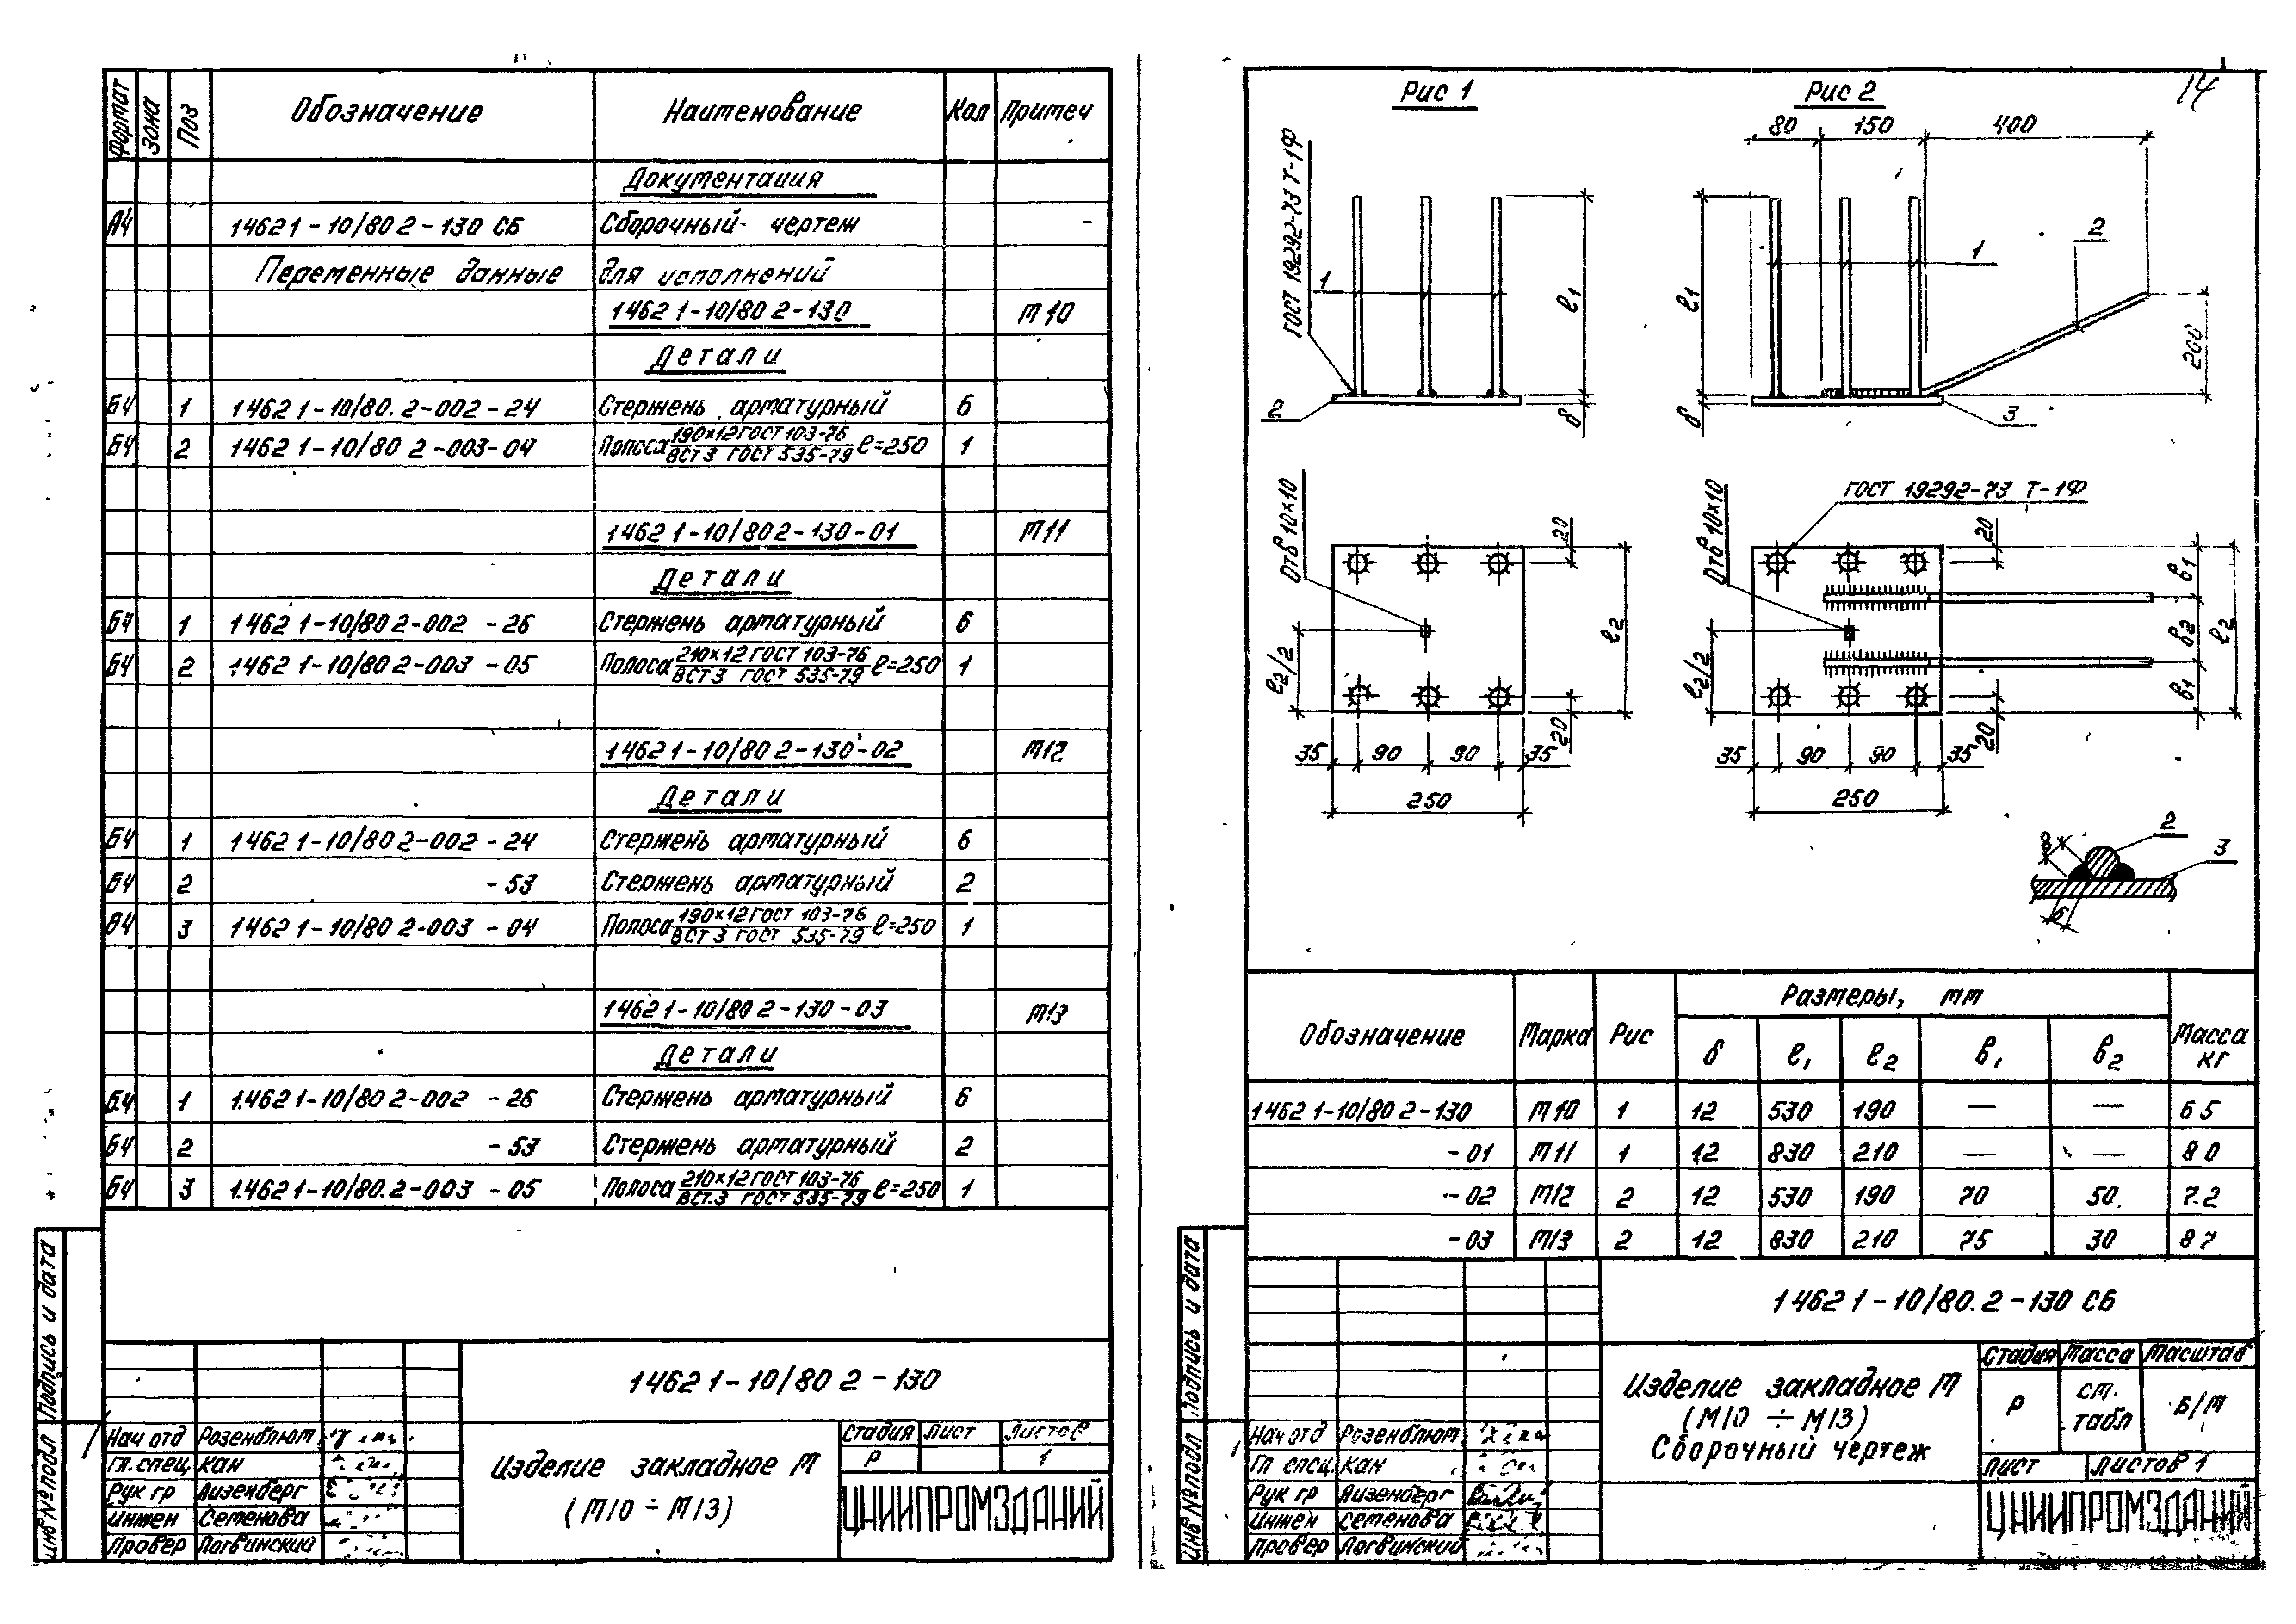 Формат Зона Поз Обозначение Наименование Кол Примеч
Документация
А4 1462 1-10/80 2-130 СБ Сборочный чертеж
Переменные данные для исполнений
1462 1-10/80 2-130 М10
Детали
Б4 1 1462 1-10/80. 2-002-24 Стержень арматурный 6
Б4 2 1462 1-10/80 2-003-04 Полоса 190×12 ГОСТ 103-76 / ВСТ 3 ГОСТ 535-79 ℓ=250 1
1462 1-10/80 2-130-01 М11
Детали
Б4 1 1462 1-10/80 2-002 -26 Стержень арматурный 6
Б4 2 1462 1-10/80 2-003 -05 Полоса 210×12 ГОСТ 103-76 / ВСТ 3 ГОСТ 535-79 ℓ=250 1
1462 1-10/80 2-130-02 М12
Детали
Б4 1 1462 1-10/80 2-002 -24 Стержень арматурный 6
Б4 2 -53 Стержень арматурный 2
Б4 3 1462 1-10/80 2-003 -04 Полоса 190×12 ГОСТ 103-76 / ВСТ 3 ГОСТ 535-79 ℓ=250 1
1462 1-10/80 2-130-03 М13
Детали
Б.4 1 1.462 1-10/80 2-002 -26 Стержень арматурный 6
Б4 2 -53 Стержень арматурный 2
Б4 3 1.462 1-10/80. 2-003 -05 Полоса 210×12 ГОСТ 103-76 / ВСТ.3 ГОСТ 535-79 ℓ=250 1
Подпись и дата
Инв № подл
1462 1-10/80 2-130
Нач отд Розенблют
Гл. спец. Кан
Рук гр Айзенберг
Инжен Семенова
Провер Логвинский
Изделие закладное М
(М10 ÷ М13)
Стадия Лист Листов
Р 1
ЦНИИПРОМЗДАНИЙ
14
Рис 1
ГОСТ 19292-73 Т-1Ф
1
2
ℓ1
δ
Отв 10×10
20
ℓ2
ℓ2/2
20
35 90 90 35
250
Рис 2
80 150 400
ℓ1
1
2
200
δ
3
ГОСТ 19292-73 Т-1Ф
Отв 10×10
20
в1
в2
ℓ2
ℓ2/2
в1
20
35 90 90 35
250
8
2
3
6
Обозначение Марка Рис Размеры, мм Масса кг
δ ℓ1 ℓ2 в1 в2
1462 1-10/80 2-130 М10 1 12 530 190 — — 6 5
-01 М11 1 12 830 210 — — 8 0
-02 М12 2 12 530 190 70 50 7.2
-03 М13 2 12 830 210 75 30 8 7
Подпись и дата
Инв № подл
1462 1-10/80. 2-130 СБ
Нач отд Розенблют
Гл спец. Кан
Рук гр Айзенберг
Инжен Семенова
Провер Логвинский
Изделие закладное М
(М10 ÷ М13)
Сборочный чертеж
Стадия Масса Масштаб
Р ст. табл Б/М
Лист Листов 1
ЦНИИПРОМЗДАНИЙ